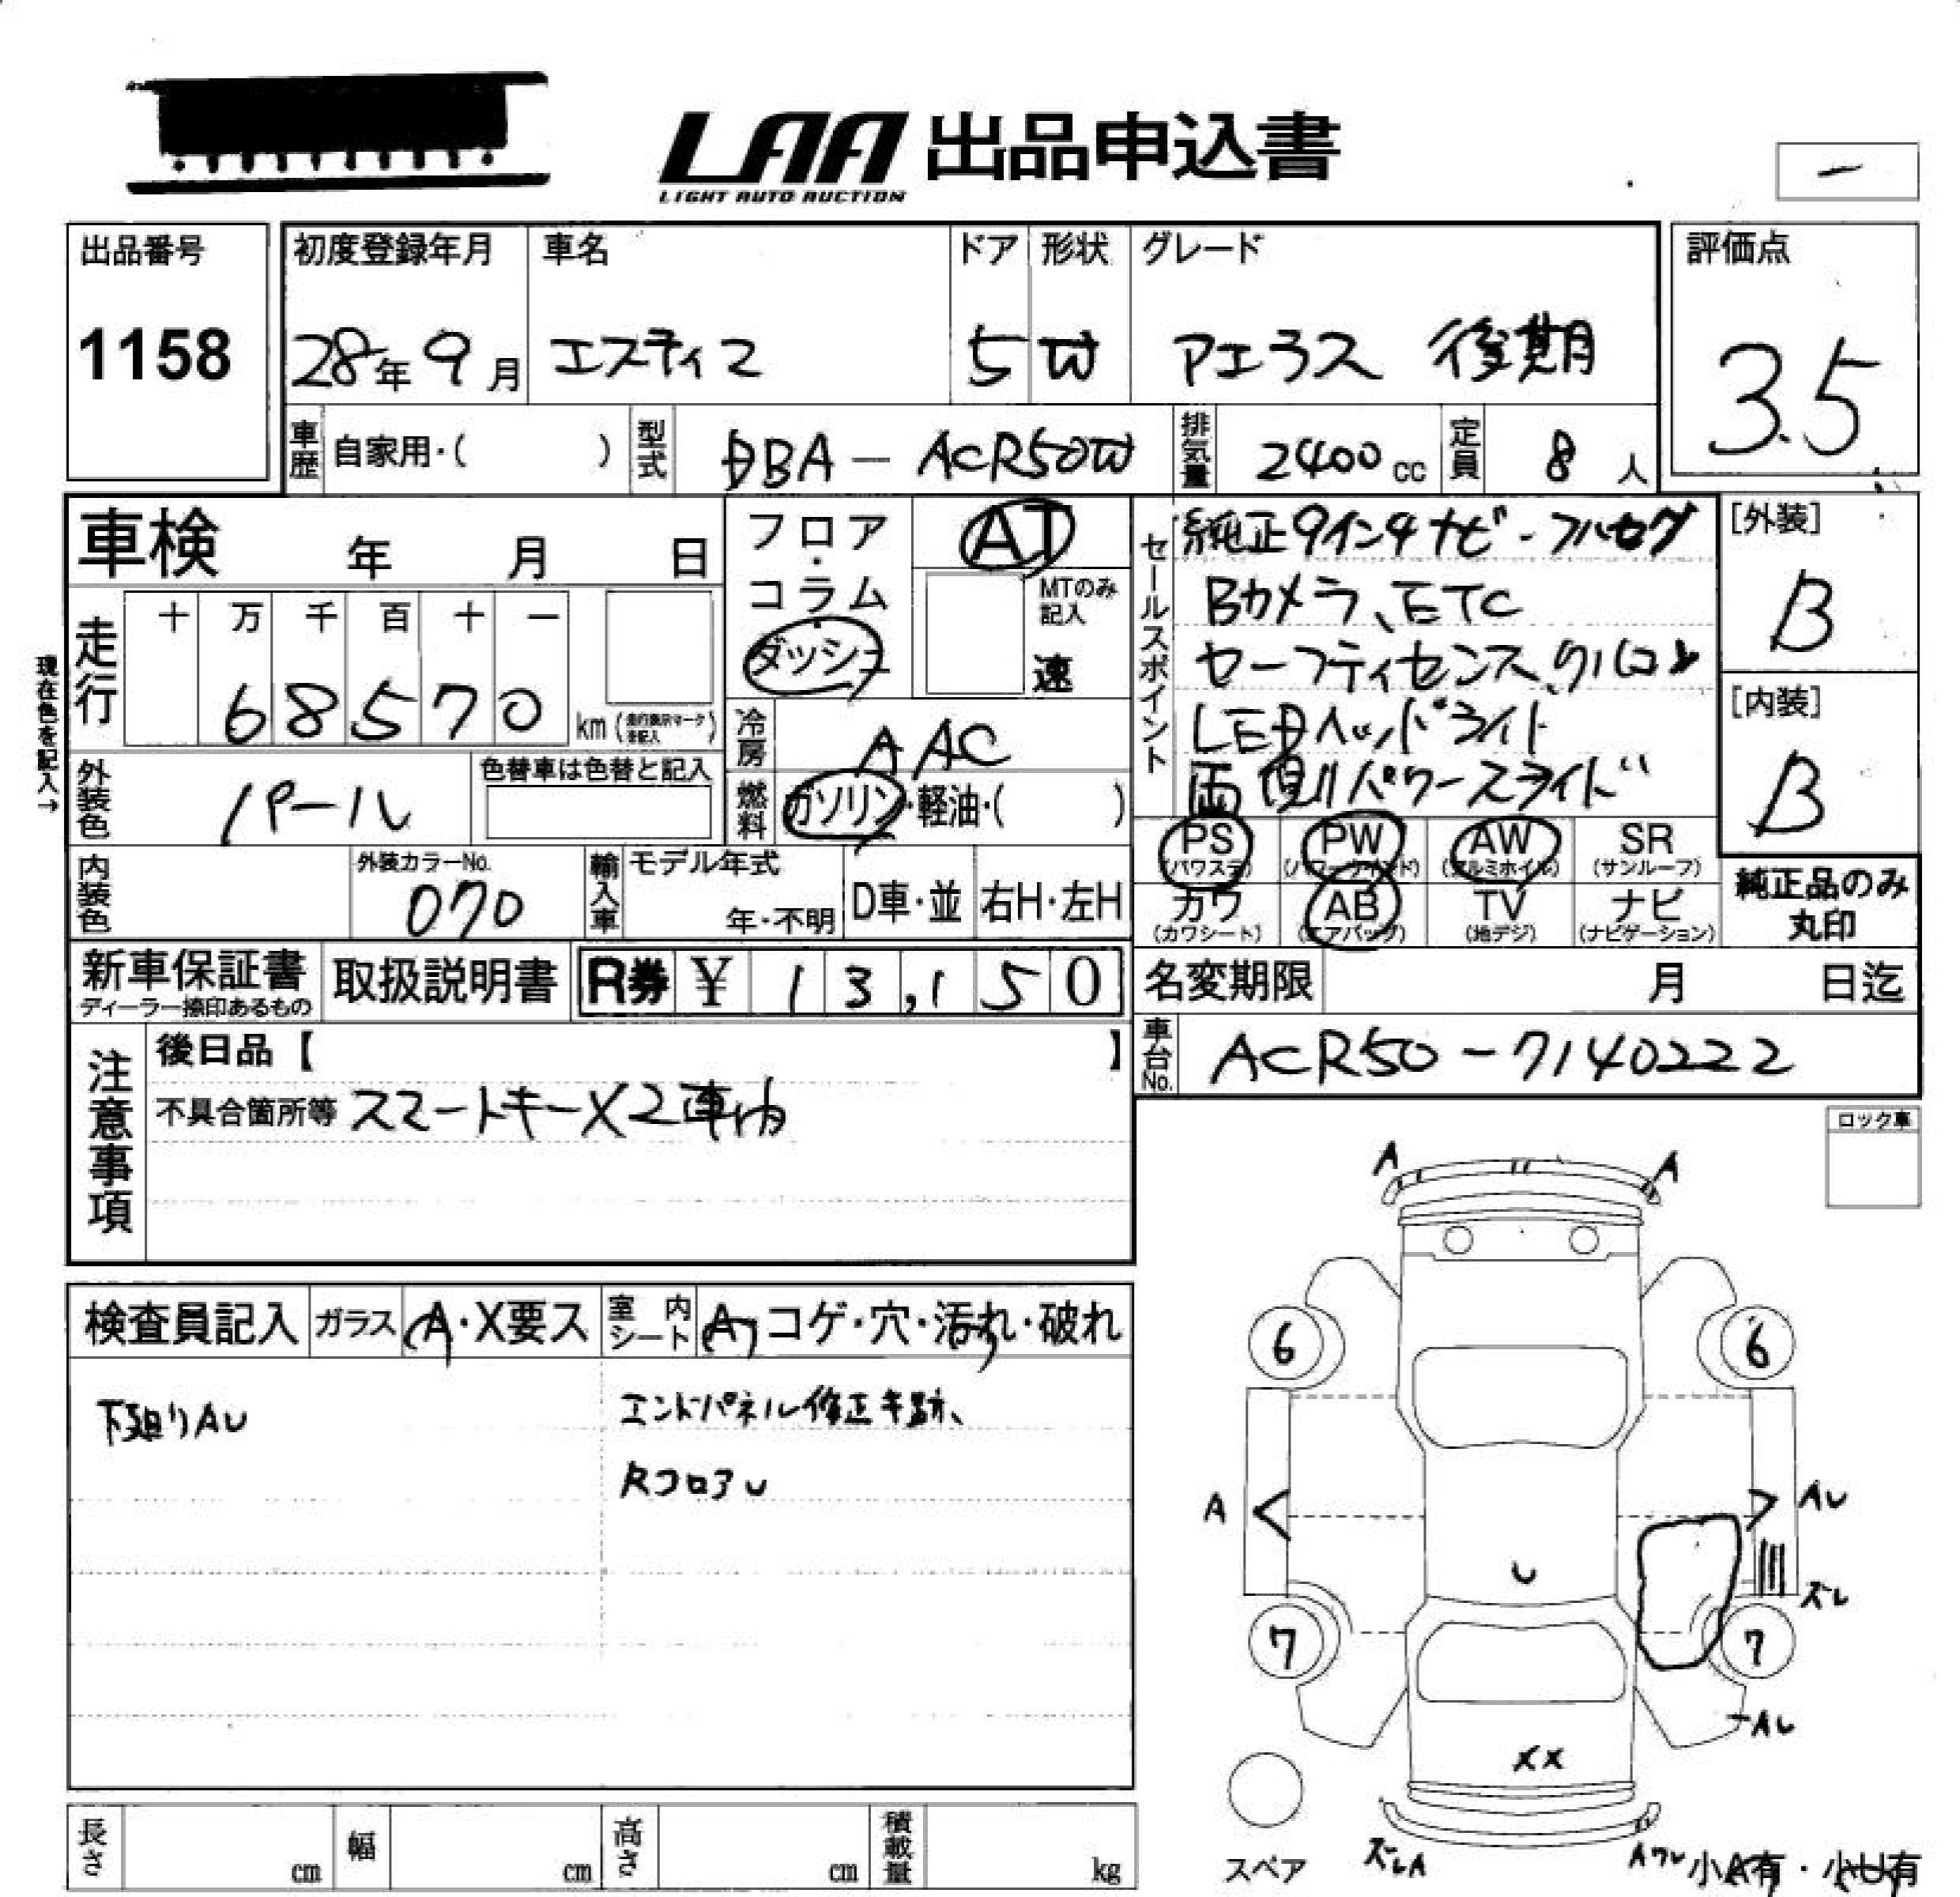 LAA 出品申込書
LIGHT AUTO AUCTION
出品番号
1158
初度登録年月
28年9月
車名
エスティマ
ドア
5
形状
W
グレード
アエラス 後期
評価点
3.5
車歴 自家用・( )
型式 DBA-ACR50W
排気量 2400cc
定員 8人
車検 年 月 日
走行
十 万 千 百 十 一
68570 km
現在色を記入→
外装色 パール
色替車は色替と記入
内装色
外装カラーNo.
070
フロア・コラム・ダッシュ
AT
MTのみ記入
速
冷房 AAC
燃料 ガソリン・軽油・( )
輸入車
モデル年式
年・不明
D車・並
右H・左H
セールスポイント
純正9インチナビ-フルセグ
Bカメラ、ETC
セーフティセンス、クルコン
LEDヘッドライト
両側パワースライド
PS (パワステ)
PW (パワーウインド)
AW (アルミホイル)
SR (サンルーフ)
カワ (カワシート)
AB (エアバッグ)
TV (地デジ)
ナビ (ナビゲーション)
[外装]
B
[内装]
B
純正品のみ
丸印
新車保証書
ディーラー捺印あるもの
取扱説明書
R券 ¥13,150
名変期限 月 日迄
車台No. ACR50-7140222
注意事項
後日品【 】
不具合箇所等 スマートキーX2車内
ロック車
検査員記入
ガラス A・X要ス
室内シート A・コゲ・穴・汚れ・破れ
下廻りAU
エンドパネル修正キ跡、
RフロアU
A
A
6
6
A
AU
U
ズレ
7
7
AU
XX
スペア
ズレA
Aワレ
小A有・小U有
長さ cm
幅 cm
高さ cm
積載量 kg